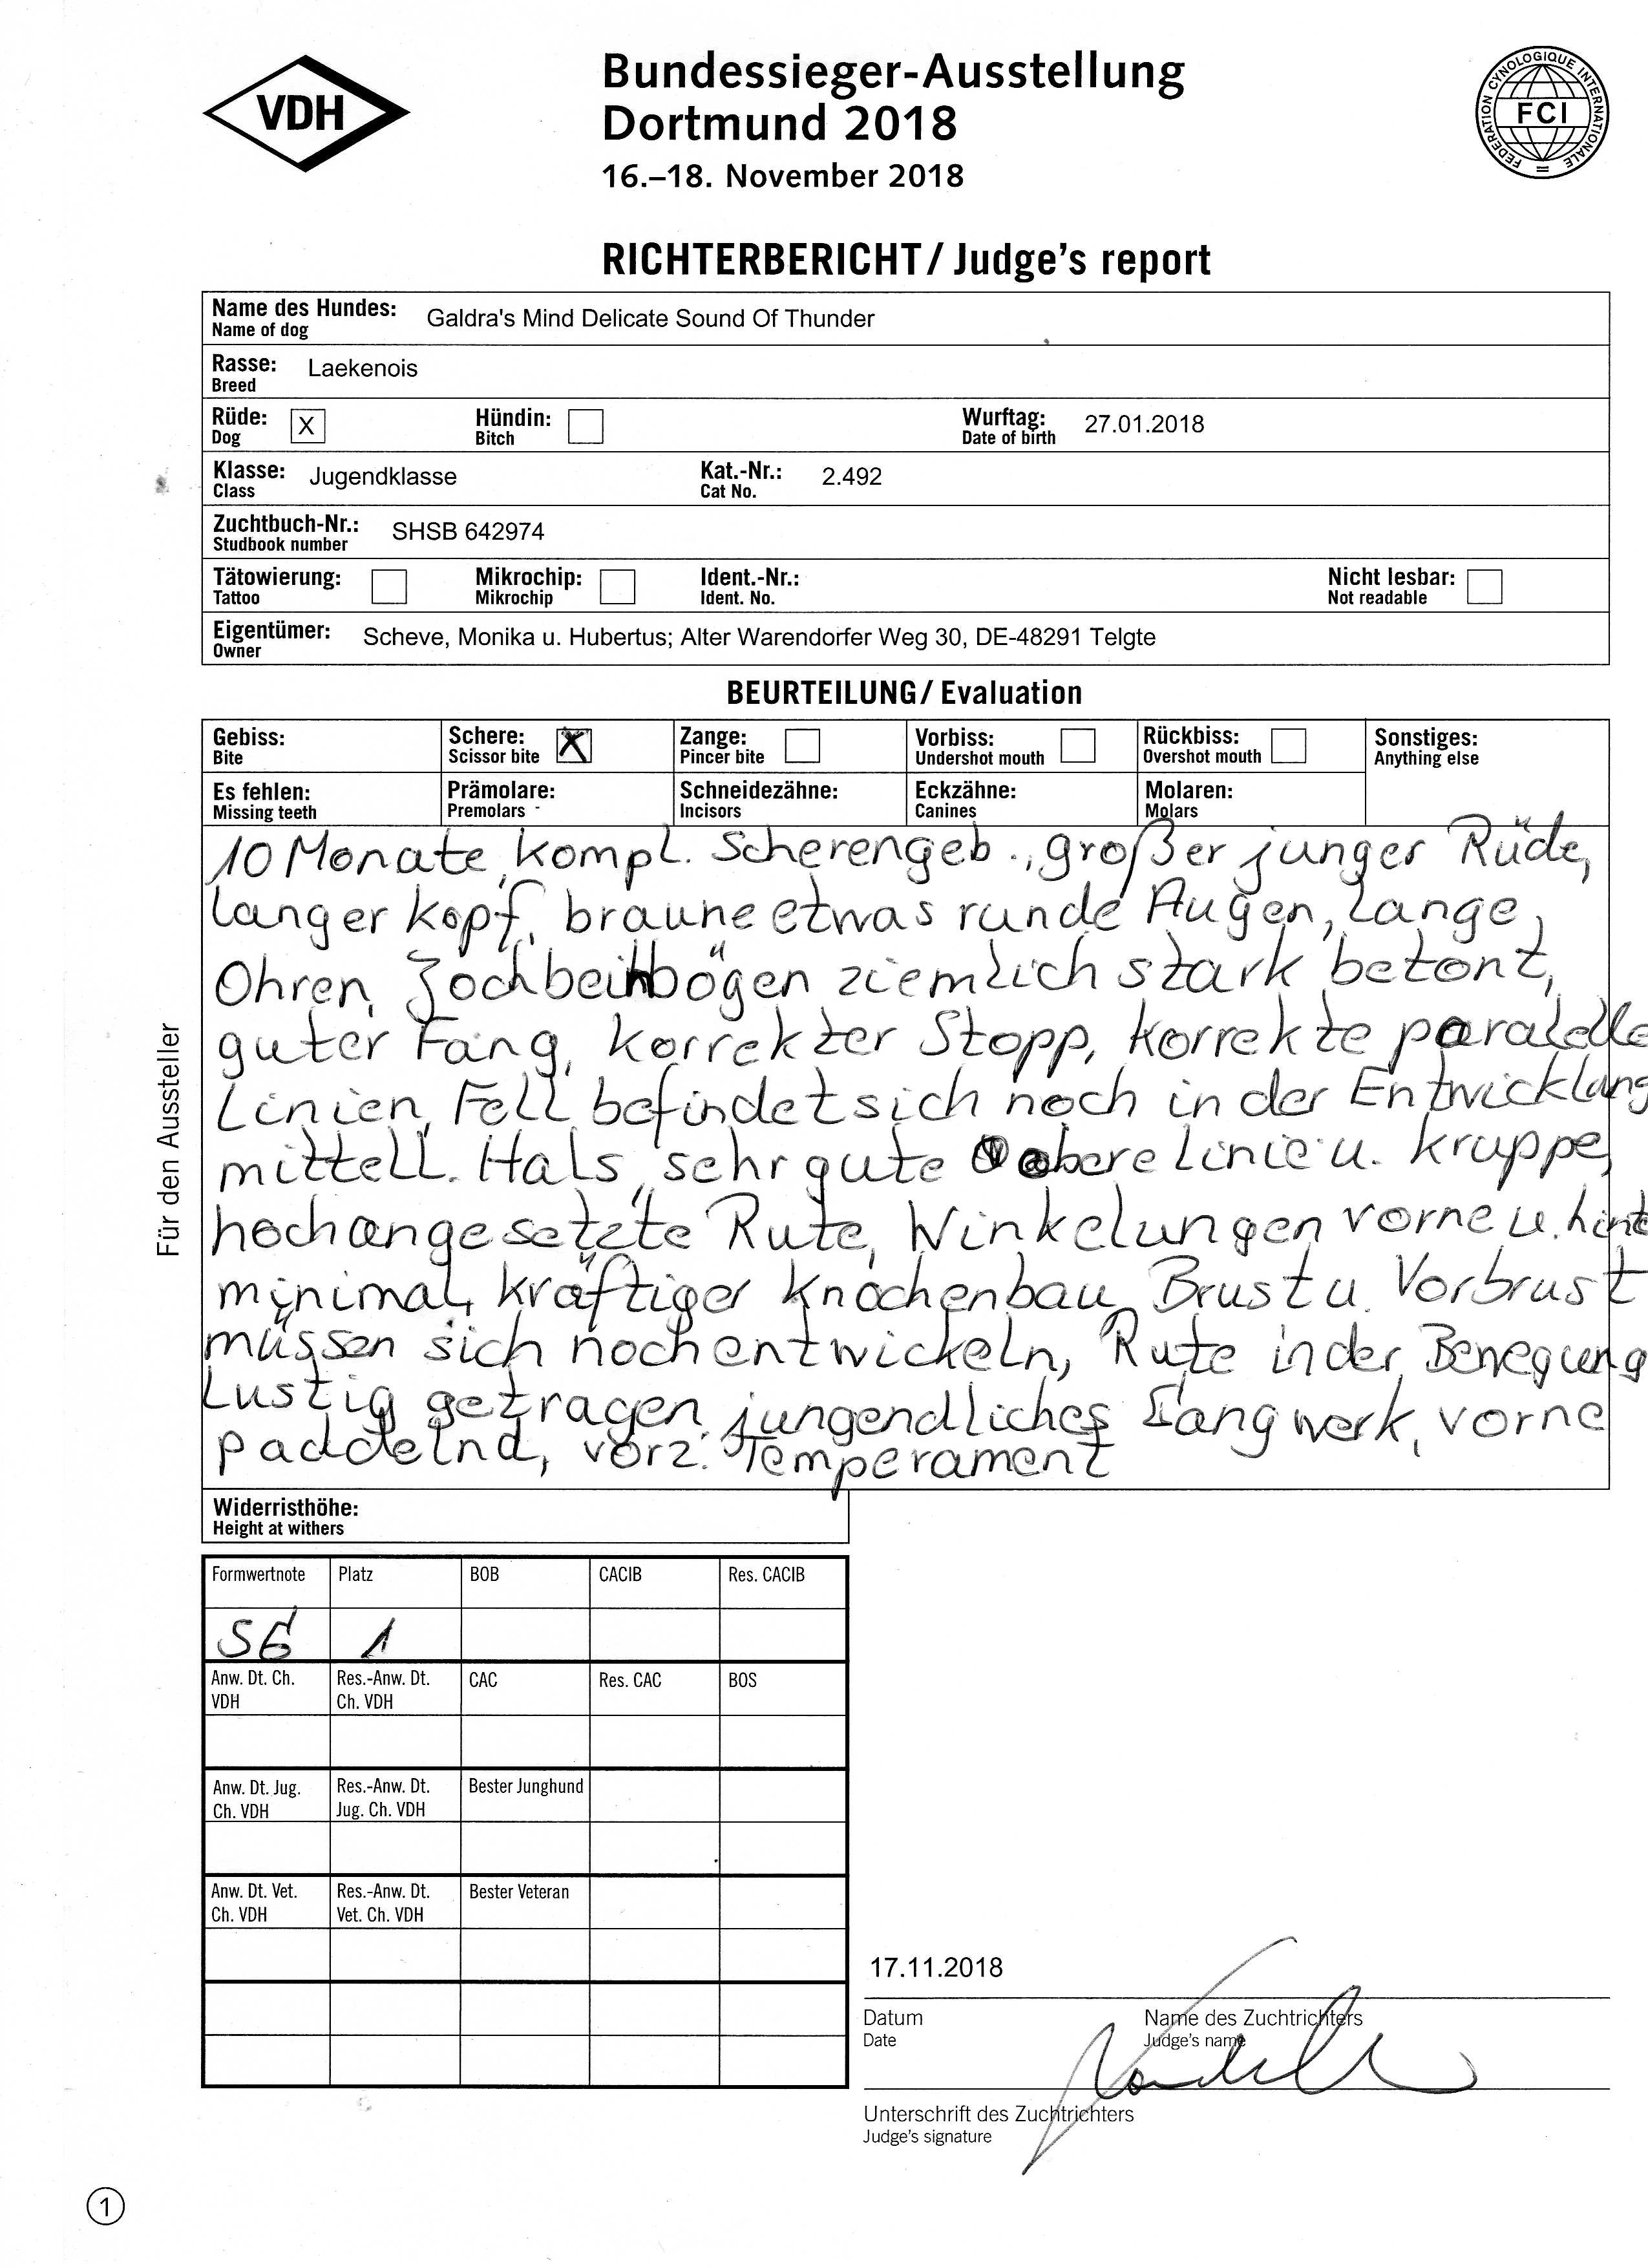 VDH
Bundessieger-Ausstellung
Dortmund 2018
16.–18. November 2018
FEDERATION CYNOLOGIQUE INTERNATIONALE
FCI
RICHTERBERICHT / Judge's report
Name des Hundes: Galdra's Mind Delicate Sound Of Thunder
Name of dog
Rasse: Laekenois
Breed
Rüde: X Hündin: Wurftag: 27.01.2018
Dog Bitch Date of birth
Klasse: Jugendklasse Kat.-Nr.: 2.492
Class Cat No.
Zuchtbuch-Nr.: SHSB 642974
Studbook number
Tätowierung: Mikrochip: Ident.-Nr.: Nicht lesbar:
Tattoo Mikrochip Ident. No. Not readable
Eigentümer: Scheve, Monika u. Hubertus; Alter Warendorfer Weg 30, DE-48291 Telgte
Owner
BEURTEILUNG / Evaluation
Gebiss: Schere: X Zange: Vorbiss: Rückbiss: Sonstiges:
Bite Scissor bite Pincer bite Undershot mouth Overshot mouth Anything else
Es fehlen: Prämolare: Schneidezähne: Eckzähne: Molaren:
Missing teeth Premolars - Incisors Canines Molars
10 Monate, kompl. Scherengeb., großer junger Rüde,
langer Kopf, braune etwas runde Augen, lange
Ohren, Jochbeinbögen ziemlich stark betont,
guter Fang, korrekter Stopp, korrekte paralelle
Linien, Fell befindet sich noch in der Entwicklung
mittell. Hals, sehr gute obere Linie u. Kruppe,
hochangesetzte Rute, Winkelungen vorne u. hint
minimal, kräftiger Knochenbau, Brust u. Vorbrust
müssen sich noch entwickeln, Rute in der Bewegung
lustig getragen, jungendliches Gangwerk, vorne
paddelnd, vorz. Temperament
Für den Aussteller
Widerristhöhe:
Height at withers
Formwertnote Platz BOB CACIB Res. CACIB
SG 1
Anw. Dt. Ch. Res.-Anw. Dt. CAC Res. CAC BOS
VDH Ch. VDH
Anw. Dt. Jug. Res.-Anw. Dt. Bester Junghund
Ch. VDH Jug. Ch. VDH
Anw. Dt. Vet. Res.-Anw. Dt. Bester Veteran
Ch. VDH Vet. Ch. VDH
17.11.2018
Datum Name des Zuchtrichters
Date Judge's name
Unterschrift des Zuchtrichters
Judge's signature
1